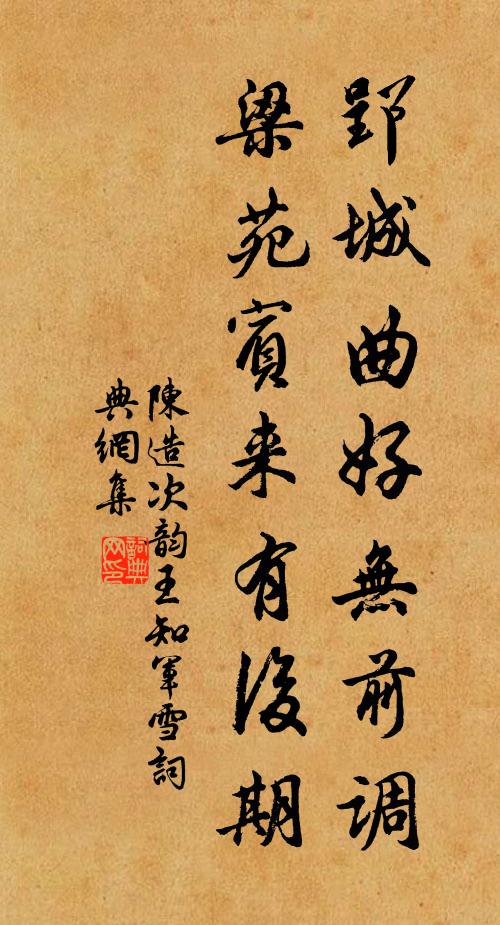 郢城曲好無前調
梁苑賓来有後期
陳造次韵王知軍雪詞
典網集
詞典
网印